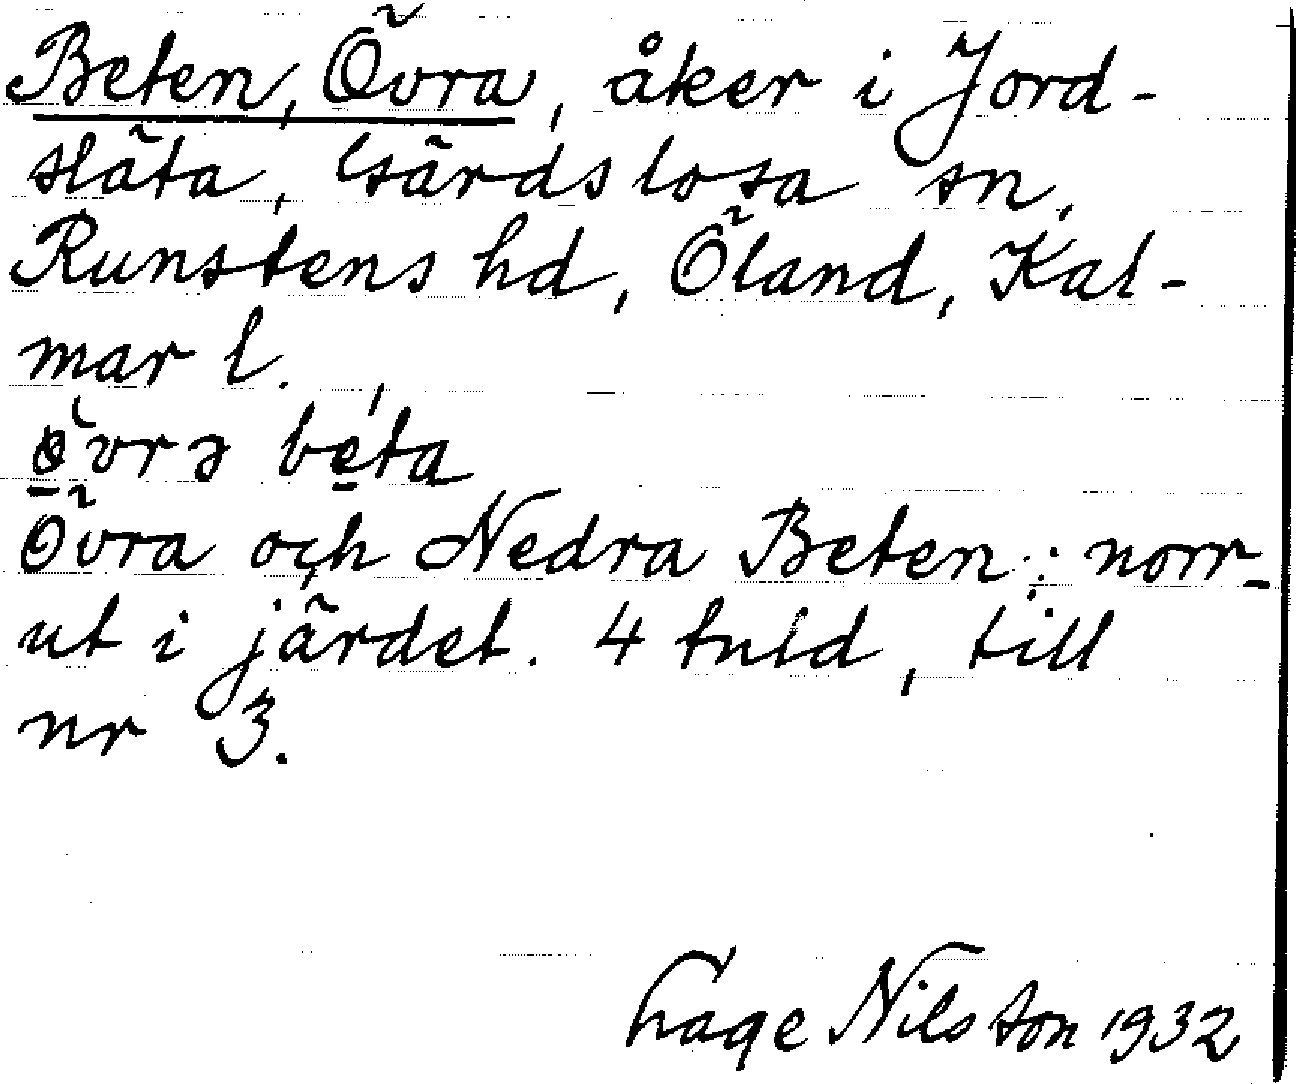 Beten, Övra, åker i Jord-
släta, Gärdslösa sn,
Runstens hd, Öland, Kal-
mar l.
övrə beta
Övra och Nedra Beten: norr-
ut i järdet. 4 tnld, till
nr 3.
Hage Nilsson 1932